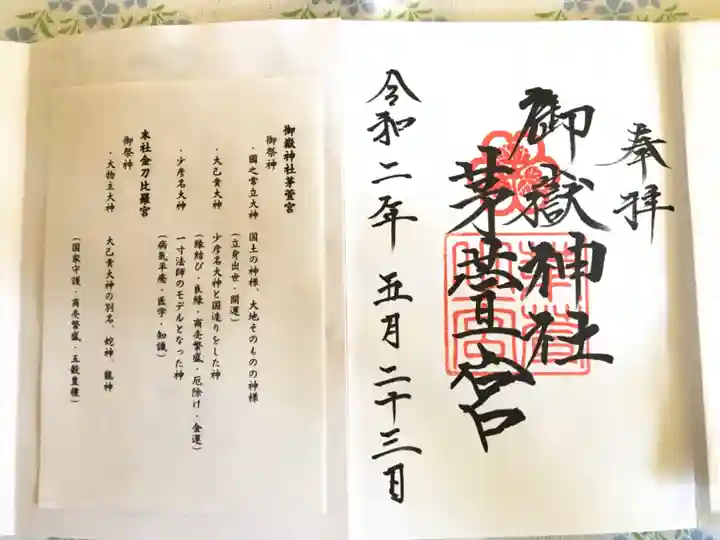 奉拝
御嶽神社
茅萱宮
令和二年五月二十三日
御嶽神社茅萱宮
御祭神
・國之常立大神 国土の神様、大地そのものの神様
(立身出世・開運)
・大己貴大神 少彦名大神と国造りをした神
(縁結び・良縁・商売繁盛・厄除け・金運)
・少彦名大神 一寸法師のモデルとなった神
(病気平癒・医学・知識)
末社金刀比羅宮
御祭神
・大物主大神 大己貴大神の別名、蛇神、龍神
(国家守護・商売繁盛・五穀豊穣)